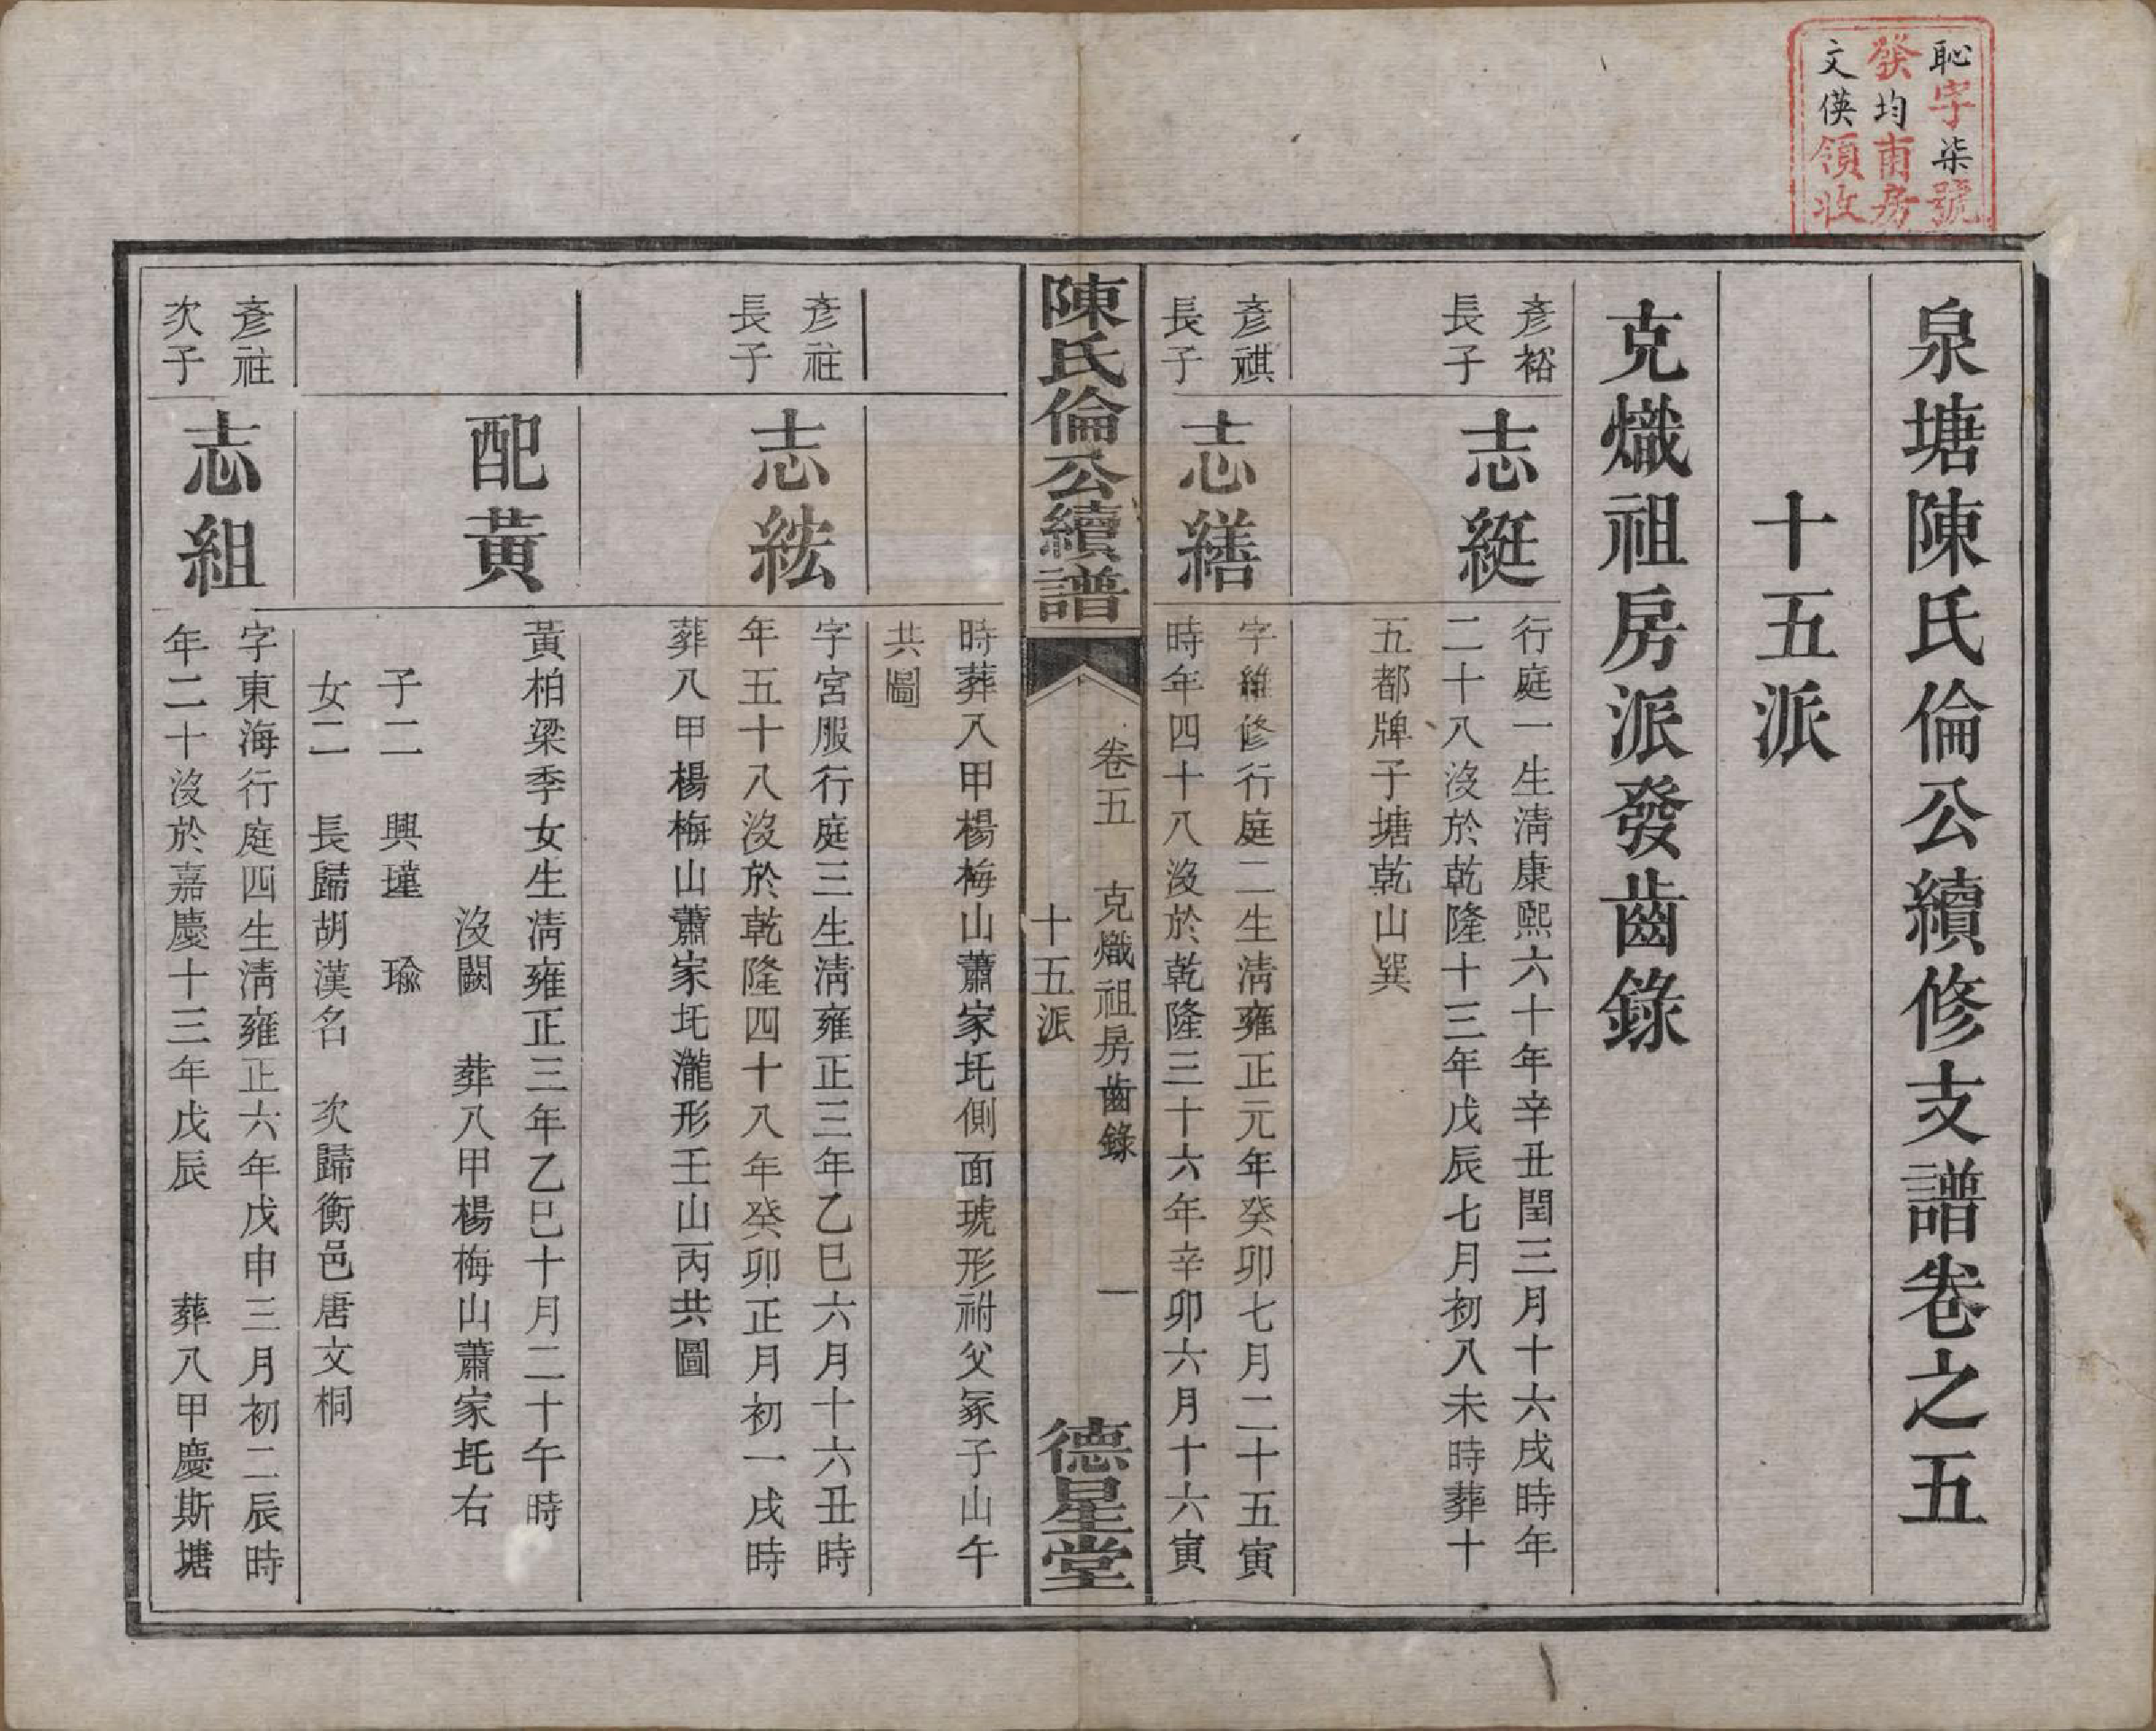 恥字柒號
發均甫房
文偀領收
泉塘陳氏倫公續修支譜卷之五
十五派
克熾祖房派發齒錄
彥裕
長子
志綎
行庭一生淸康熙六十年辛丑閏三月十六戌時年
二十八沒於乾隆十三年戊辰七月初八未時葬十
五都牌子塘乾山巽
彥祺
長子
志繕
字維修行庭二生淸雍正元年癸卯七月二十五寅
時年四十八沒於乾隆三十六年辛卯六月十六寅
陳氏倫公續譜
卷五 克熾祖房齒錄 一
十五派
德星堂
時葬八甲楊梅山蕭家圫側面琥形祔父冢子山午
共圖
彥社
長子
志紘
字宮服行庭三生淸雍正三年乙巳六月十六丑時
年五十八沒於乾隆四十八年癸卯正月初一戌時
葬八甲楊梅山蕭家圫瀧形壬山丙共圖
配黃
黃柏梁季女生淸雍正三年乙巳十月二十午時
沒闕 葬八甲楊梅山蕭家圫右
子二 興瑾 瑜
女二 長歸胡漢名 次歸衡邑唐文桐
彥社
次子
志組
字東海行庭四生淸雍正六年戊申三月初二辰時
年二十沒於嘉慶十三年戊辰 葬八甲慶斯塘